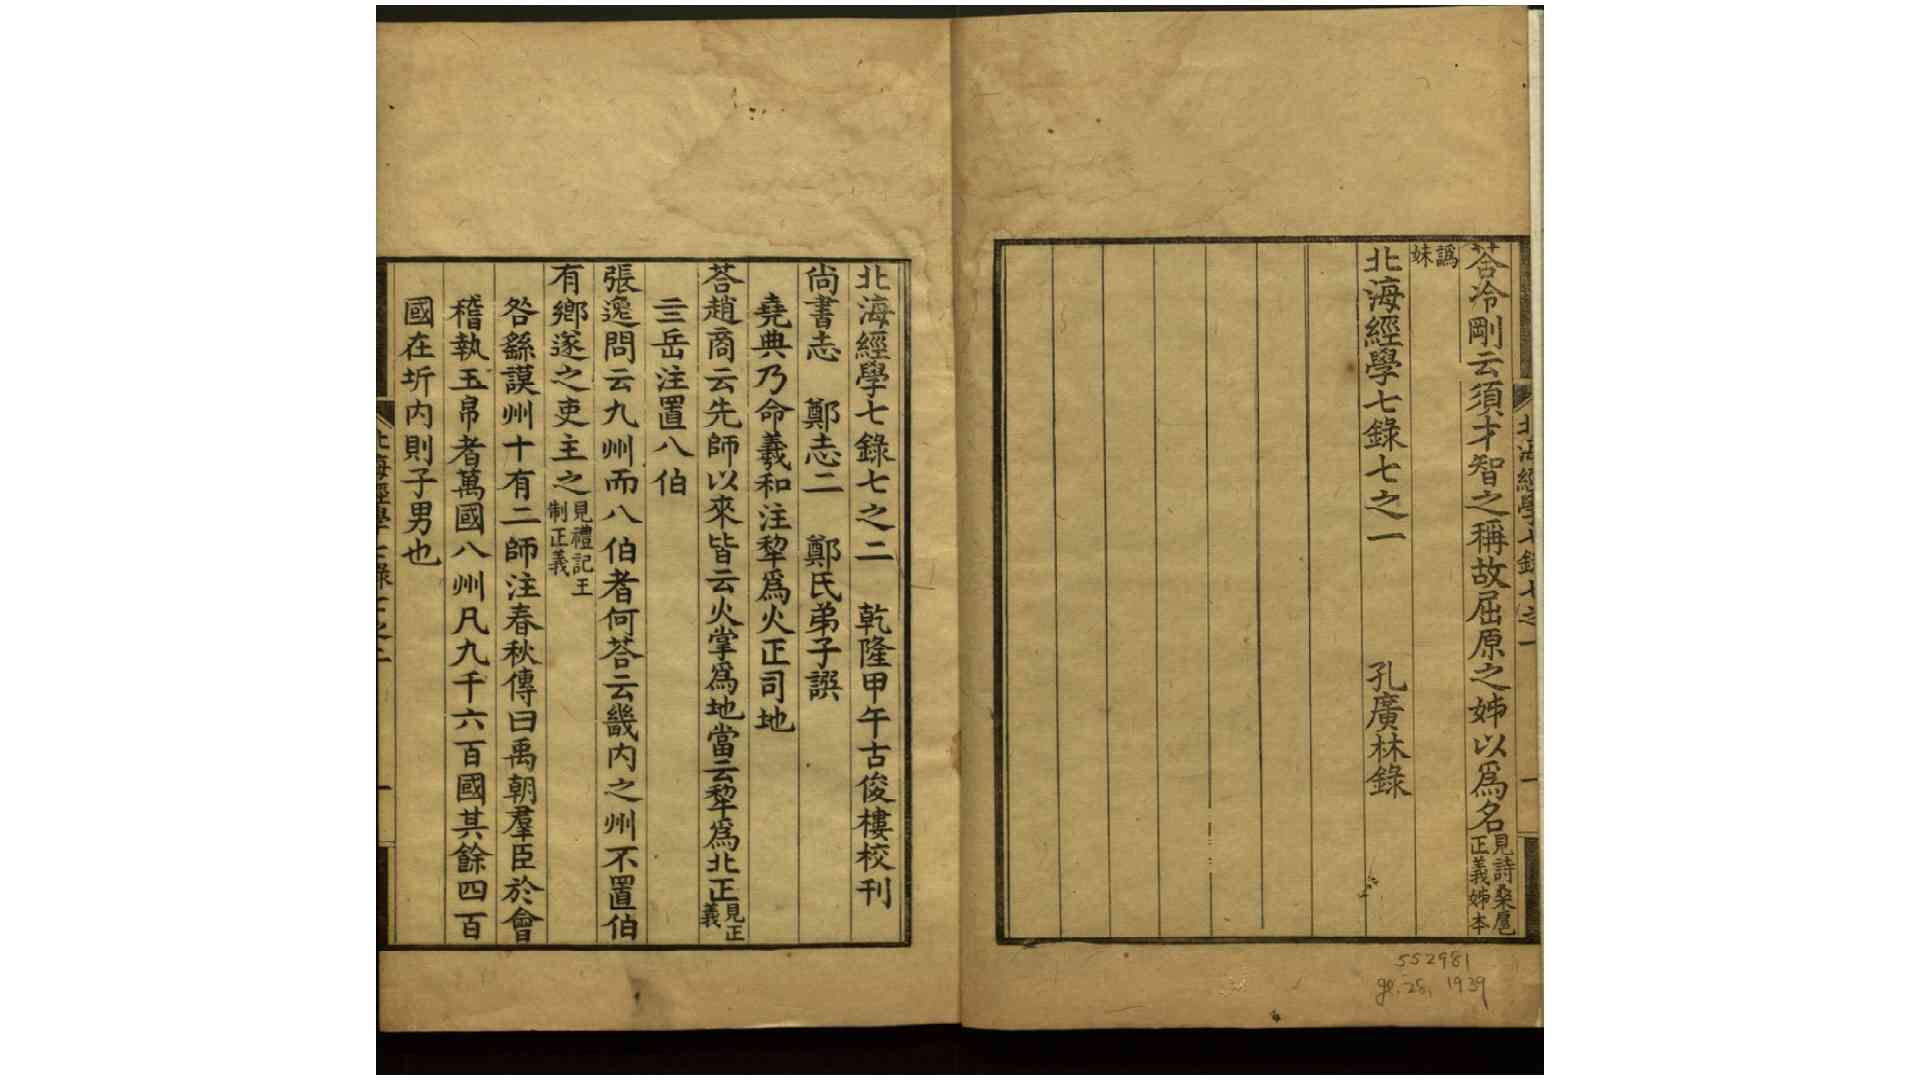 北海經學七錄七之一 一
荅冷剛云須才智之稱故屈原之姊以爲名見詩桑扈
正義姊本
譌
妹
北海經學七錄七之一 孔廣林錄
552981
28, 1939
北海經學七錄七之二 乾隆甲午古俊樓校刊
尙書志 鄭志二 鄭氏弟子譔
堯典乃命羲和注犂爲火正司地
荅趙商云先師以來皆云火掌爲地當云犂爲北正見正
義
亖岳注置八伯
張逸問云九州而八伯者何荅云畿内之州不置伯
有鄉遂之吏主之見禮記王
制正義
咎繇謨州十有二師注春秋傳曰禹朝羣臣於會
稽執玉帛者萬國八州凡九千六百國其餘四百
國在圻内則子男也
北海經學七錄七之二 一